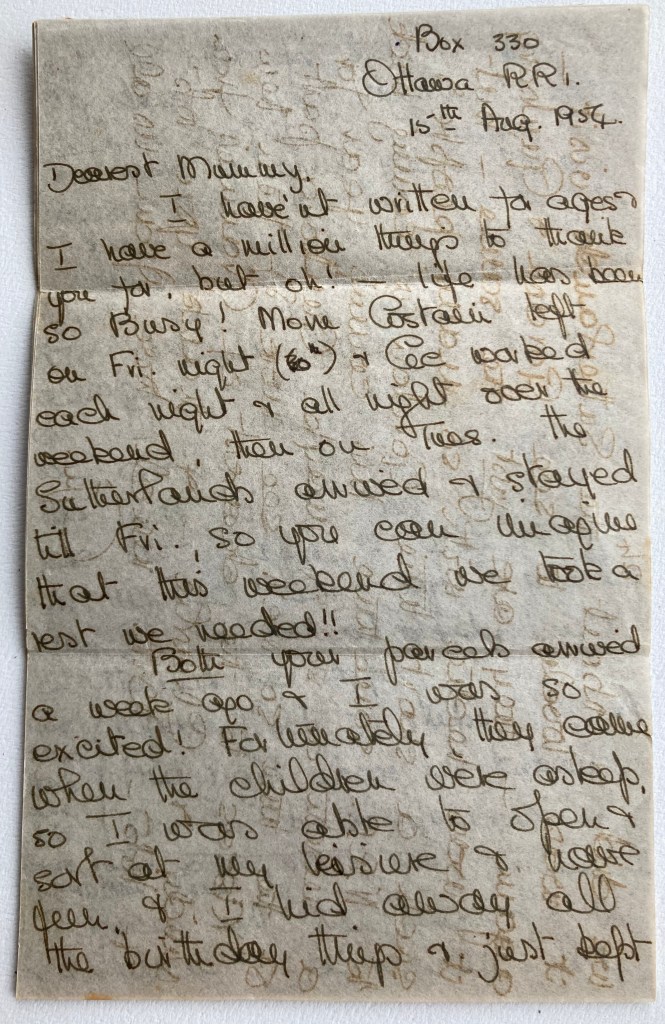 Box 330
Ottawa RR1.
15th Aug. 1954.
Dearest Mummy.
I have'nt written for ages &
I have a million things to thank
you for, but oh! — life has been
so Busy! Mom Costain left
on Fri. night ( ) & Cec worked
each night & all night over the
weekend, then on Tues. the
Sutherlands arrived & stayed
till Fri. so you can imagine
that this weekend we took a
rest we needed!!
Both your parcels arrived
a week ago & I was so
excited! Fortunately they came
when the children were asleep,
so I was able to open &
sort at my leisure & have
fun, & I hid away all
the birthday things & just kept